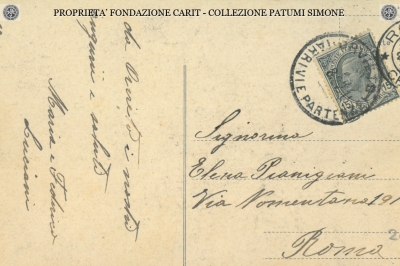 PROPRIETA' FONDAZIONE CARIT - COLLEZIONE PATUMI SIMONE
da
i nostri
e saluti
Maria e Federico
Luciani
ARRIVI E PARTENZE
15
Signorina
Elena Pianigiani
Via Nomentana 191
Roma